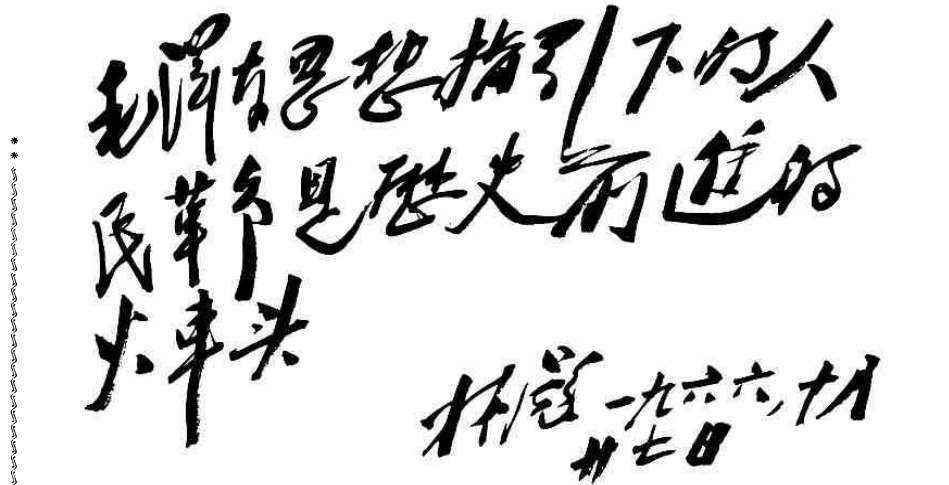 毛泽东思想指引下的人
民革命是歷史前進的
火車头
林彪 一九六六、十月
廿七日